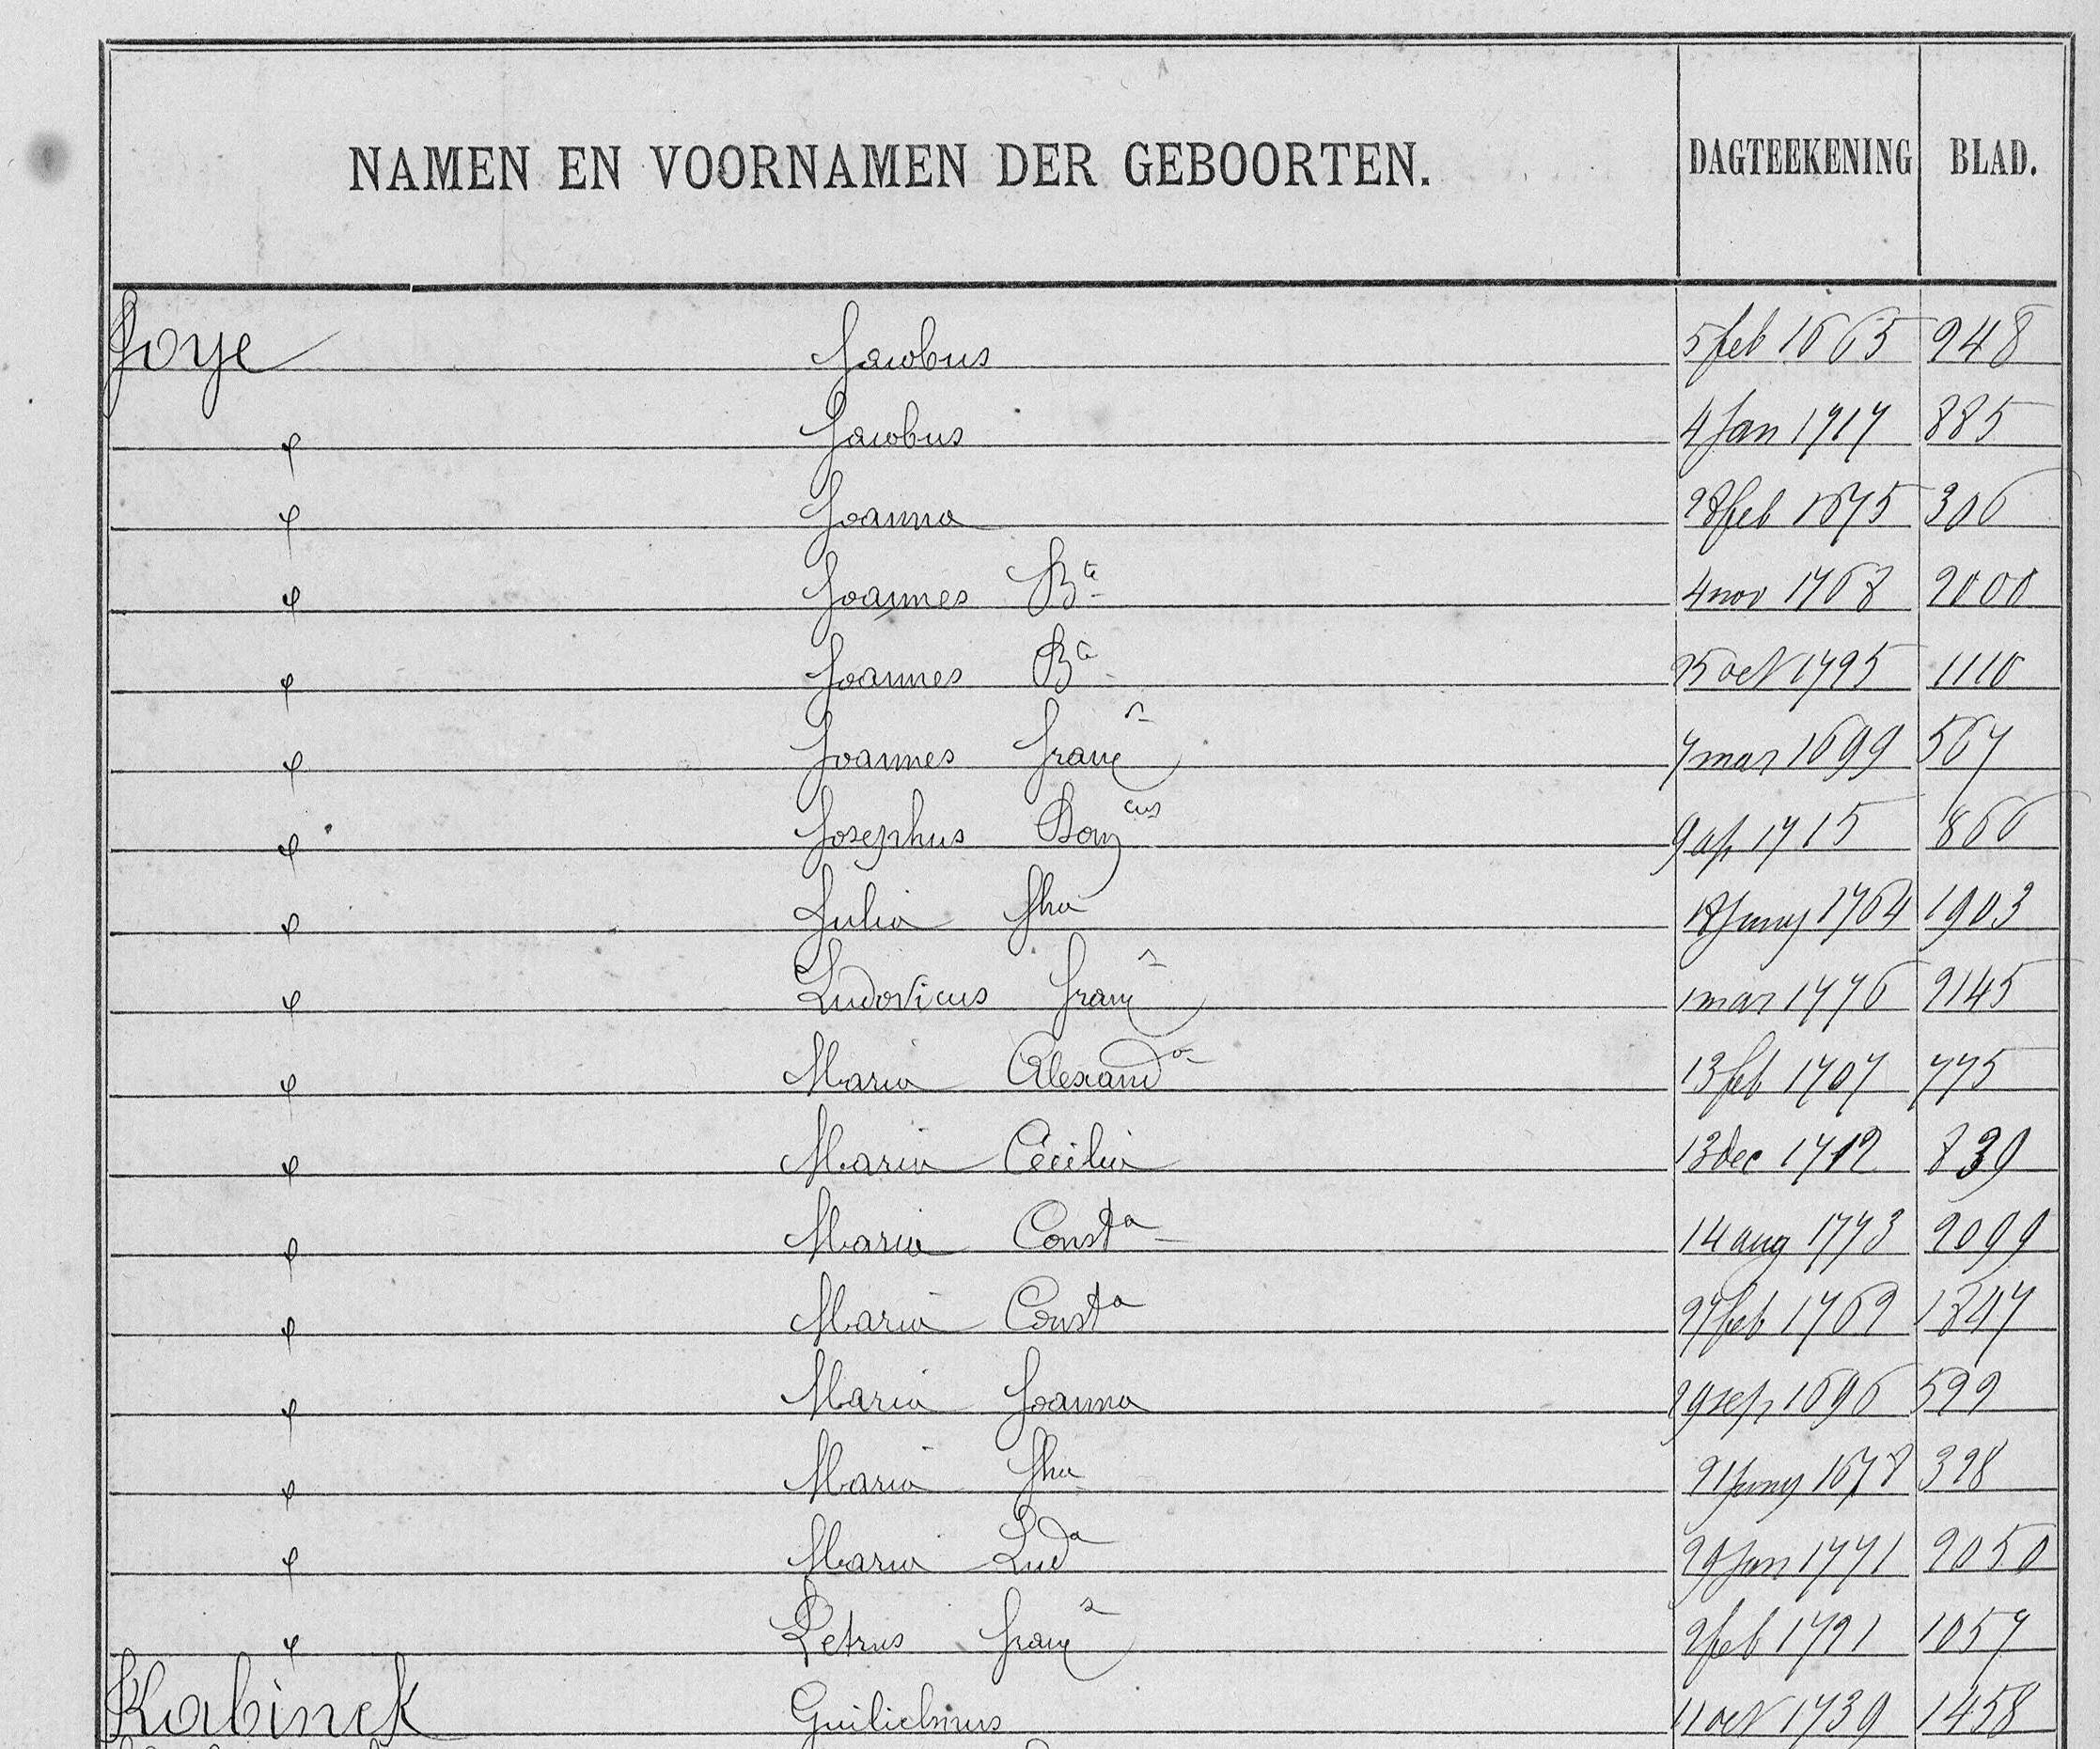 NAMEN EN VOORNAMEN DER GEBOORTEN. DAGTEEKENING BLAD.
Joye Jacobus 5 feb 1665 948
φ Jacobus 4 Jan 1717 885
φ Joanna 28 feb 1675 306
φ Joannes Bta 4 nov 1768 2000
φ Joannes Bta 25 oct 1725 1110
φ Joannes Francs 7 mar 1699 567
φ Josephus Domcus 9 ap 1715 866
φ Julia Jha 18 Juny 1764 1903
φ Ludovicus Francs 1 mar 1776 2145
φ Maria Alexanda 13 feb 1707 775
φ Maria Cécilia 13 dec 1712 839
φ Maria Consta 14 aug 1773 2099
φ Maria Consta 27 feb 1762 1847
φ Maria Joanna 29 sep 1696 522
φ Maria Jha 21 Juny 1678 328
φ Maria Luda 29 Jan 1771 2050
φ Petrus Francs 2 feb 1721 1057
Kabinek Guilielmus 11 oct 1739 1458